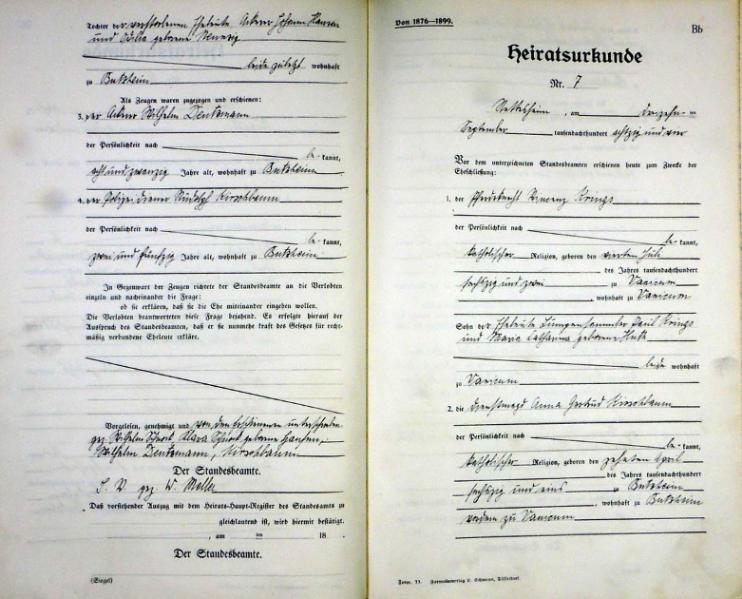 Tochter der verstorbenen Eheleute, Ackerer Johann Hansen
und Odilia geborene
beide zuletzt wohnhaft
zu Butzheim
Als Zeugen waren zugezogen und erschienen:
3. der Ackerer Wilhelm Dentzmann
der Persönlichkeit nach
be- kannt,
acht und zwanzig Jahre alt, wohnhaft zu Butzheim
4. der Polizeidiener Rudolph Kirschbaum
der Persönlichkeit nach
be- kannt,
zwei und fünfzig Jahre alt, wohnhaft zu Butzheim
In Gegenwart der Zeugen richtete der Standesbeamte an die Verlobten
einzeln und nacheinander die Frage:
ob sie erklären, daß sie die Ehe miteinander eingehen wollen.
Die Verlobten beantworteten diese Frage bejahend. Es erfolgte hierauf der
Ausspruch des Standesbeamten, daß er sie nunmehr kraft des Gesetzes für recht-
mäßig verbundene Eheleute erkläre.
Vorgelesen, genehmigt und von den Erschienenen unterschrieben
gez. Wilhelm Klara geborene Hansen,
Wilhelm Dentzmann, Kirschbaum
Der Standesbeamte.
I. V. gez. W. Meller
Daß vorstehender Auszug mit dem Heirats-Haupt-Register des Standesamts zu
gleichlautend ist, wird hiermit bestätigt.
, am ten 18
Der Standesbeamte.
(Siegel)
Von 1876—1899.
Bb
Heiratsurkunde
Nr. 7
Nettesheim, am dreizehn-
September tausendachthundert achtzig und vier
Vor dem unterzeichneten Standesbeamten erschienen heute zum Zwecke der
Eheschließung:
1. der Pferdeknecht Krings
der Persönlichkeit nach
be- kannt,
katholischer Religion, geboren den vierten Juli
des Jahres tausendachthundert
sechszig und zwei zu Vanicum
, wohnhaft zu Vanicum
Sohn der Eheleute Lumpensammler Paul Krings
und Maria Catharina geborene
beide wohnhaft
zu Vanicum
2. die Dienstmagd Anna Gertrud Kirschbaum
der Persönlichkeit nach
be- kannt,
katholischer Religion, geboren den zehnten April
des Jahres tausendachthundert
sechszig und eins zu Butzheim
, wohnhaft zu Butzheim
vordem zu Vanicum
Form. 11. Formularverlag L. Schwann, Düsseldorf.